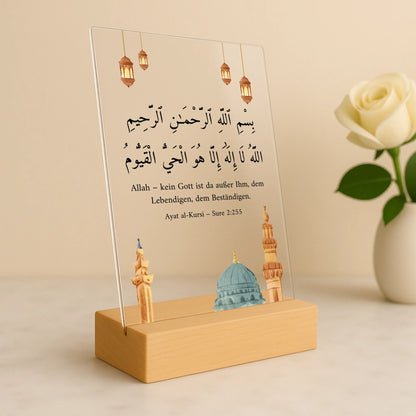 بِسْمِ ٱللَّهِ ٱلرَّحْمَـٰنِ ٱلرَّحِيمِ
اللَّهُ لَا إِلَٰهَ إِلَّا هُوَ الْحَيُّ الْقَيُّومُ
Allah – kein Gott ist da außer Ihm, dem
Lebendigen, dem Beständigen.
Ayat al-Kursi – Sure 2:255